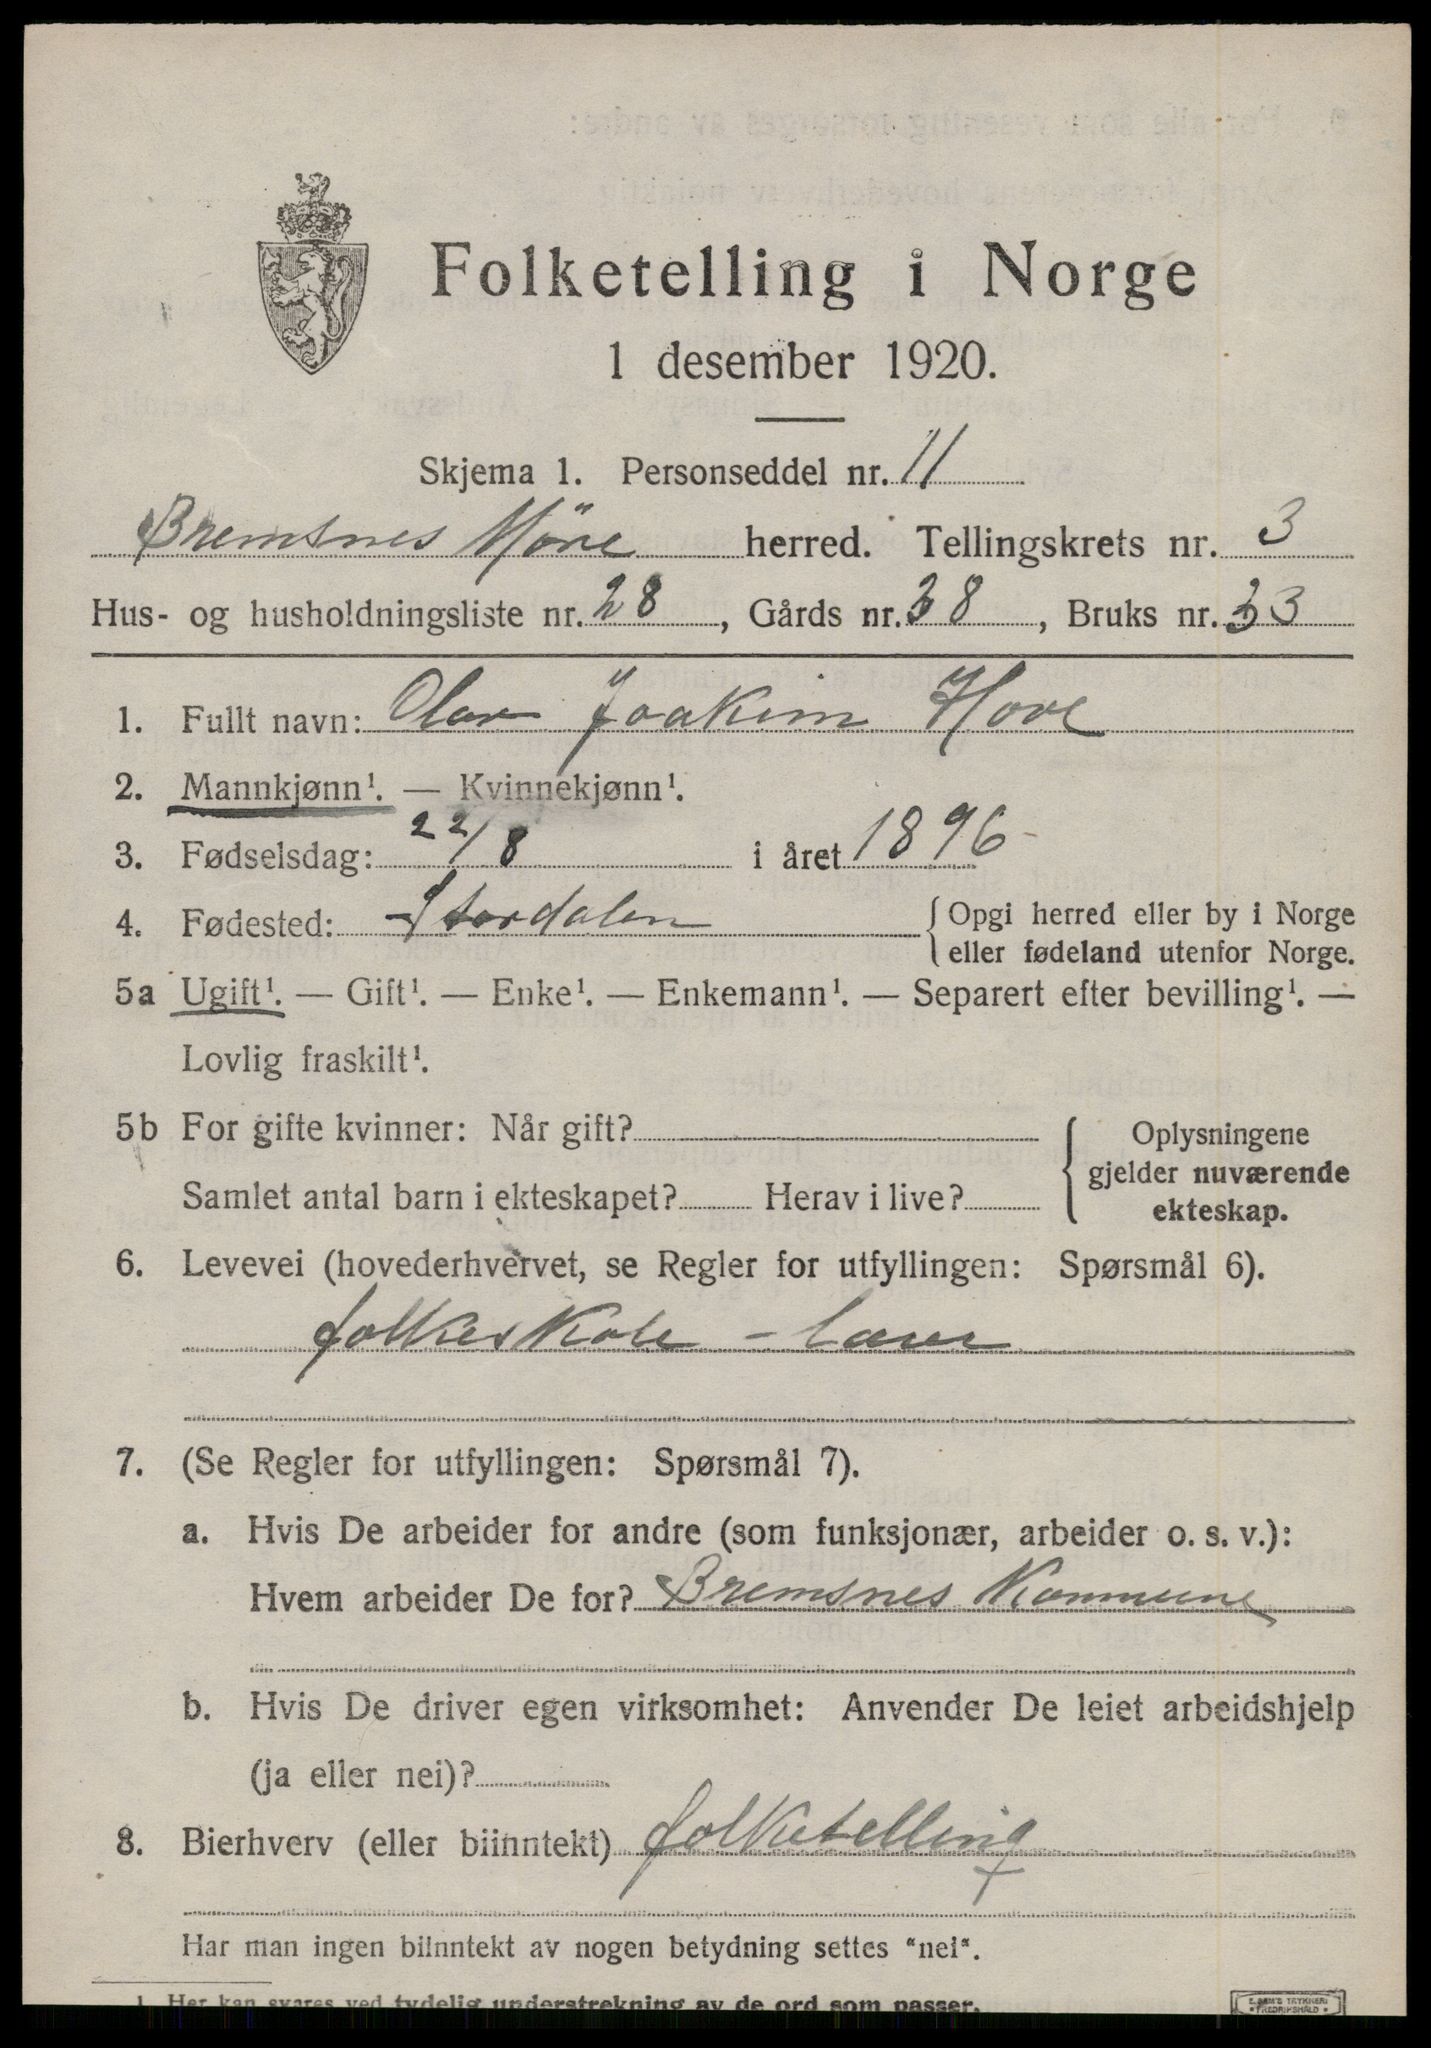 Folketelling i Norge
1 desember 1920.
Skjema 1. Personseddel nr. 11
Bremsnes Möre herred. Tellingskrets nr. 3
Hus- og husholdningsliste nr. 28, Gårds nr. 38, Bruks nr. 33
1. Fullt navn: Olav Joakim Hove
2. Mannkjønn¹. — Kvinnekjønn¹.
3. Fødselsdag: 22/8 i året 1896
4. Fødested: Stordalen { Opgi herred eller by i Norge
eller fødeland utenfor Norge.
5a Ugift¹. — Gift¹. — Enke¹. — Enkemann¹. — Separert efter bevilling¹. —
Lovlig fraskilt¹.
5b For gifte kvinner: Når gift? { Oplysningene
gjelder nuværende
Samlet antal barn i ekteskapet? Herav i live? ekteskap.
6. Levevei (hovederhvervet, se Regler for utfyllingen: Spørsmål 6).
folkeskole-lærer
7. (Se Regler for utfyllingen: Spørsmål 7).
a. Hvis De arbeider for andre (som funksjonær, arbeider o. s. v.):
Hvem arbeider De for? Bremsnes Kommune
b. Hvis De driver egen virksomhet: Anvender De leiet arbeidshjelp
(ja eller nei)?
8. Bierhverv (eller biinntekt) folketelling
Har man ingen biinntekt av nogen betydning settes "nei".
1. Her kan svares ved tydelig understrekning av de ord som passer.